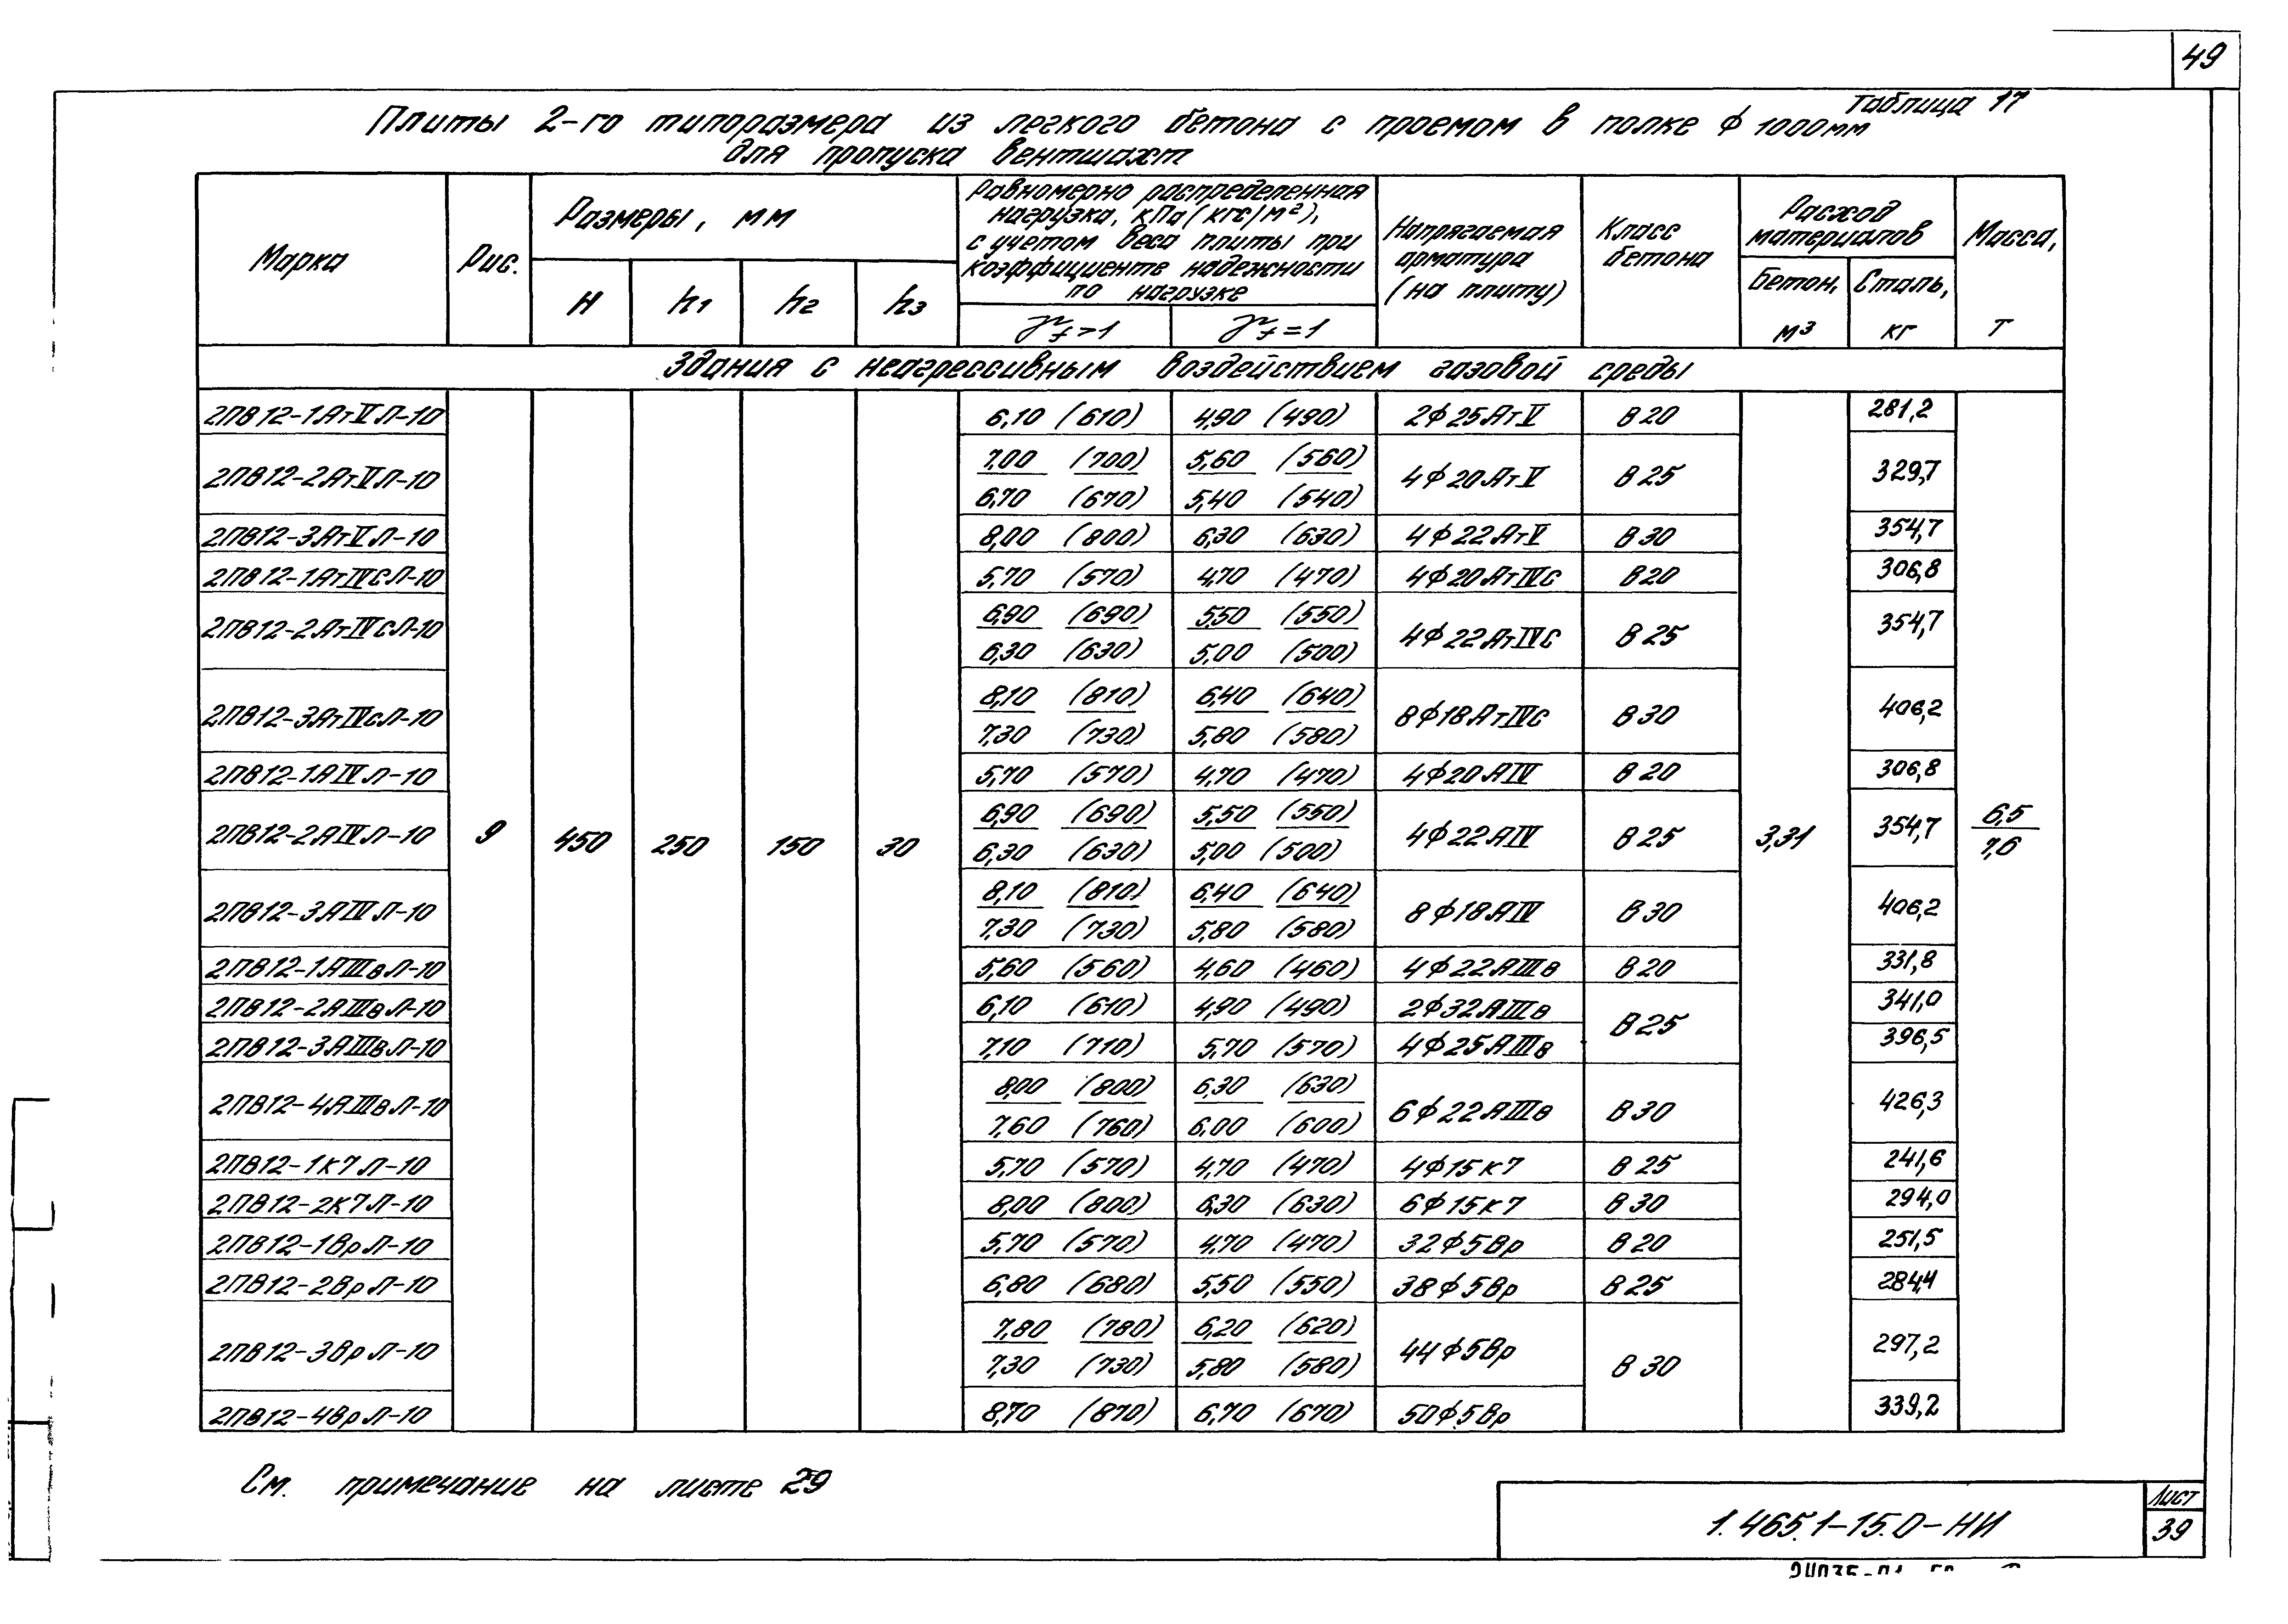 49
Таблица 17
Плиты 2-го типоразмера из легкого бетона с проемом в полке ф 1000мм
для пропуска вентшахт
Марка Рис. Размеры, мм Равномерно распределенная нагрузка, кПа (кгс/м²), с учетом веса плиты при коэффициенте надежности по нагрузке Напрягаемая арматура (на плиту) Класс бетона Расход материалов Масса, т
H h1 h2 h3 γf>1 γf=1 Бетон, м³ Сталь, кг
Здания с неагрессивным воздействием газовой среды
2ПВ12-1АтVЛ-10 6,10 (610) 4,90 (490) 2ф25АтV В20 281,2
2ПВ12-2АтVЛ-10 7,00 (700) 5,60 (560) 4ф20АтV В25 329,7
6,70 (670) 5,40 (540)
2ПВ12-3АтVЛ-10 8,00 (800) 6,30 (630) 4ф22АтV В30 354,7
2ПВ12-1АтIVСЛ-10 5,70 (570) 4,70 (470) 4ф20АтIVС В20 306,8
2ПВ12-2АтIVСЛ-10 6,90 (690) 5,50 (550) 4ф22АтIVС В25 354,7
6,30 (630) 5,00 (500)
2ПВ12-3АтIVСЛ-10 8,10 (810) 6,40 (640) 8ф18АтIVС В30 406,2
7,30 (730) 5,80 (580)
2ПВ12-1АIVЛ-10 5,70 (570) 4,70 (470) 4ф20АIV В20 306,8
2ПВ12-2АIVЛ-10 9 450 250 150 30 6,90 (690) 5,50 (550) 4ф22АIV В25 3,31 354,7 6,5
6,30 (630) 5,00 (500) 7,6
2ПВ12-3АIVЛ-10 8,10 (810) 6,40 (640) 8ф18АIV В30 406,2
7,30 (730) 5,80 (580)
2ПВ12-1АIIIвЛ-10 5,60 (560) 4,60 (460) 4ф22АIIIв В20 331,8
2ПВ12-2АIIIвЛ-10 6,10 (610) 4,90 (490) 2ф32АIIIв В25 341,0
2ПВ12-3АIIIвЛ-10 7,10 (710) 5,70 (570) 4ф25АIIIв 396,5
2ПВ12-4АIIIвЛ-10 8,00 (800) 6,30 (630) 6ф22АIIIв В30 426,3
7,60 (760) 6,00 (600)
2ПВ12-1К7Л-10 5,70 (570) 4,70 (470) 4ф15К7 В25 241,6
2ПВ12-2К7Л-10 8,00 (800) 6,30 (630) 6ф15К7 В30 294,0
2ПВ12-1ВрЛ-10 5,70 (570) 4,70 (470) 32ф5Вр В20 251,5
2ПВ12-2ВрЛ-10 6,80 (680) 5,50 (550) 38ф5Вр В25 284,4
2ПВ12-3ВрЛ-10 7,80 (780) 6,20 (620) 44ф5Вр В30 297,2
7,30 (730) 5,80 (580)
2ПВ12-4ВрЛ-10 8,70 (870) 6,70 (670) 50ф5Вр 339,2
См. примечание на листе 29
1.465.1-15.0-НИ
Лист
39